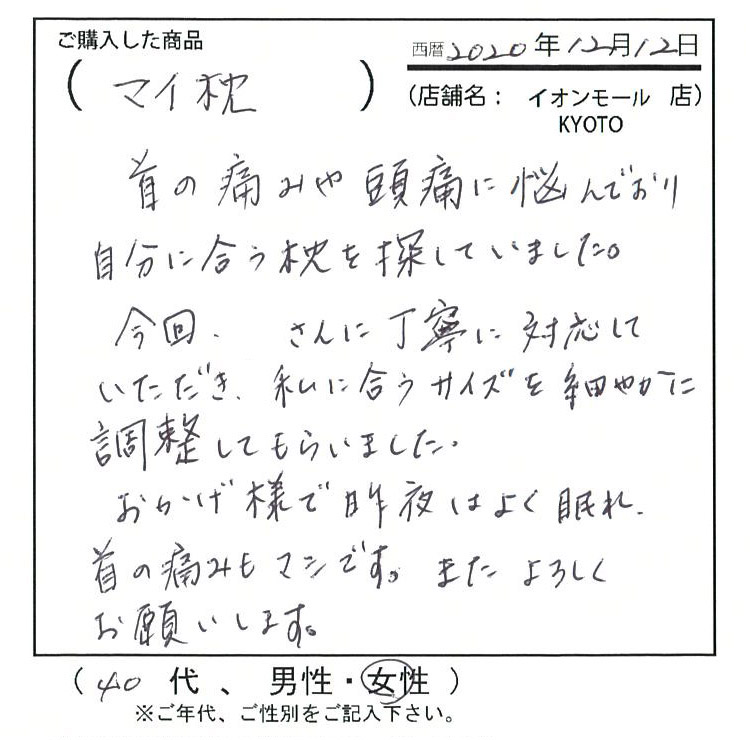 ご購入した商品
西暦2020年12月12日
(マイ枕)
(店舗名： イオンモール 店)
KYOTO
首の痛みや頭痛に悩んでおり
自分に合う枕を探していました。
今回、 さんに丁寧に対応して
いただき、私に合うサイズを細やかに
調整してもらいました。
おかげ様で昨夜はよく眠れ、
首の痛みもマシです。またよろしく
お願いします。
(40代、男性・女性)
※ご年代、ご性別をご記入下さい。